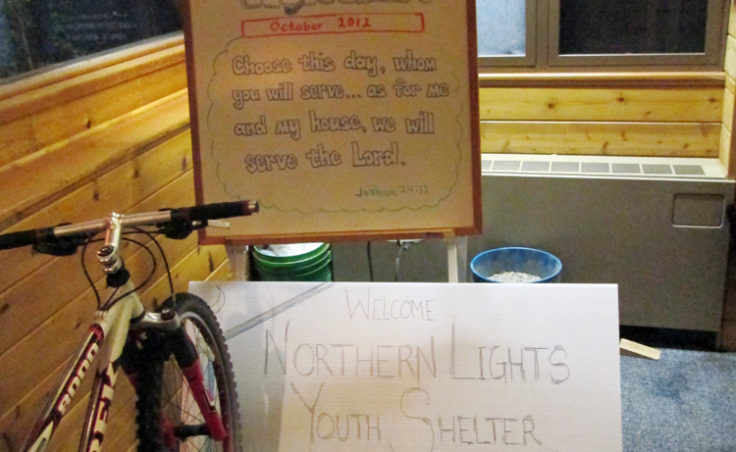 October 2012
Choose this day, whom
you will serve... as for me
and my house, we will
serve the Lord.
Joshua 24:15
WELCOME
NORTHERN LIGHTS
YOUTH SHELTER